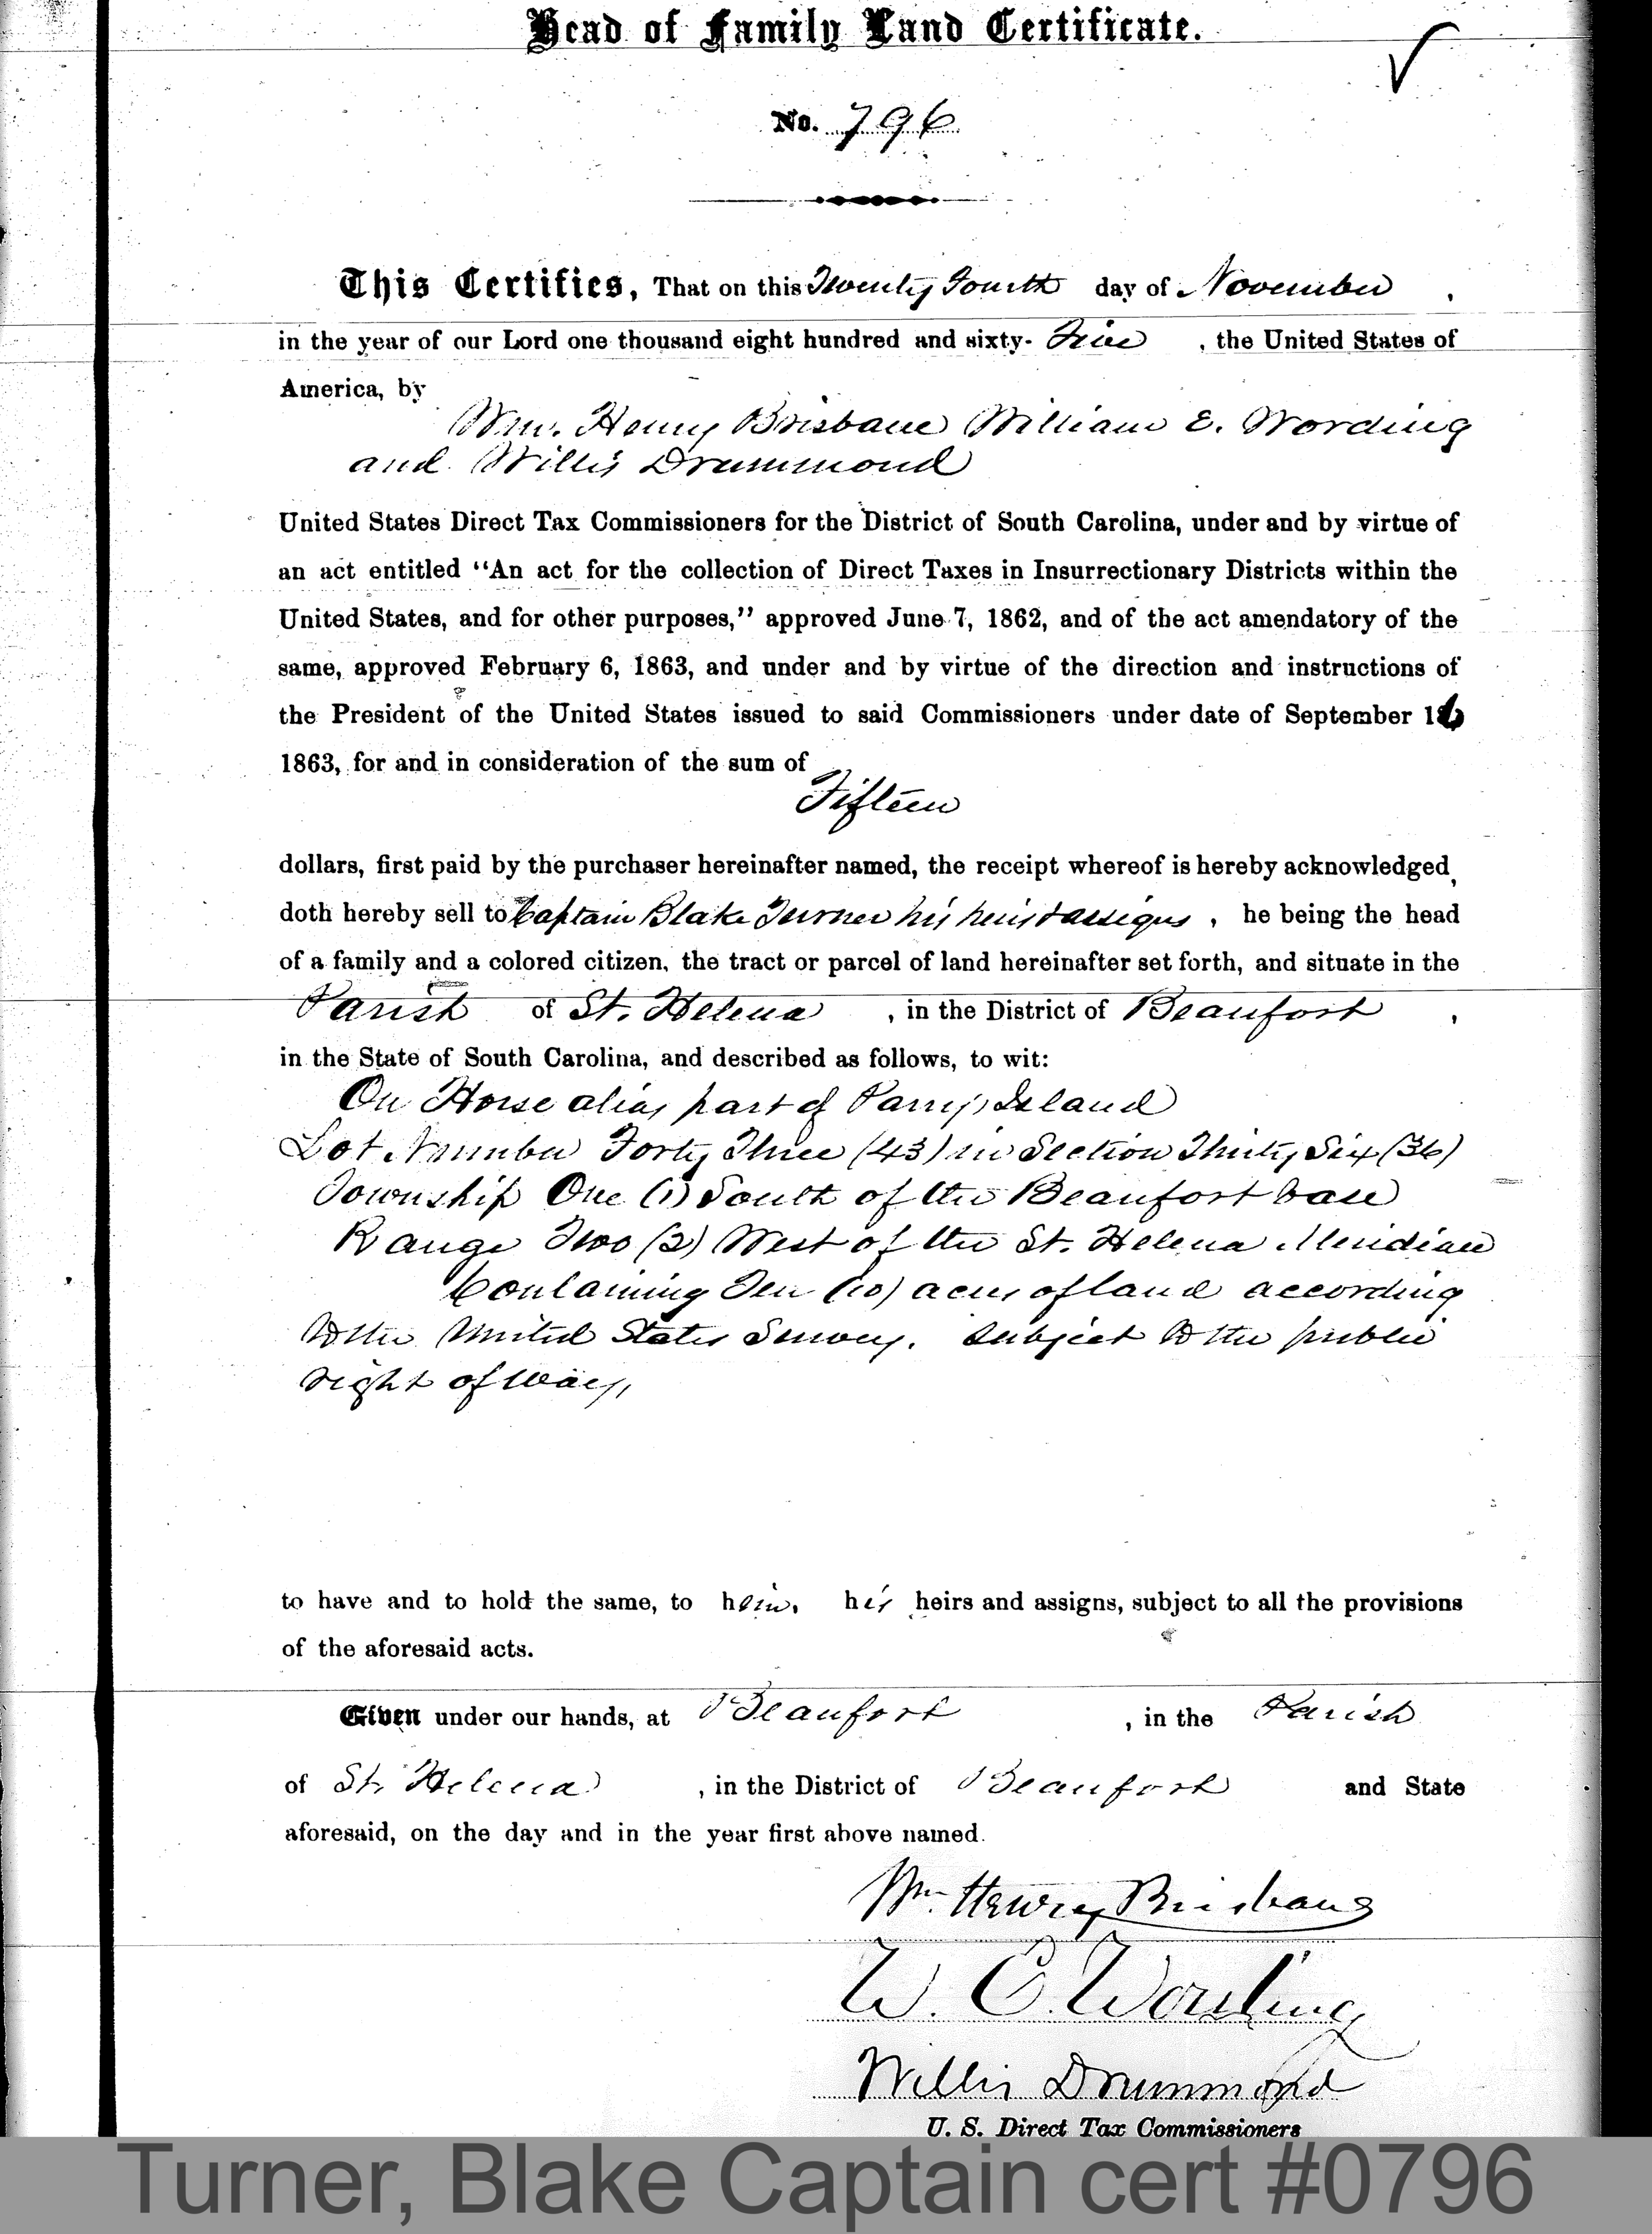 Head of Family Land Certificate.
No. 796
This Certifies, That on this Twenty Fourth day of November,
in the year of our Lord one thousand eight hundred and sixty- Five, the United States of
America, by
Wm. Henry Brisbane William E. Wording
and Willis Drummond
United States Direct Tax Commissioners for the District of South Carolina, under and by virtue of
an act entitled "An act for the collection of Direct Taxes in Insurrectionary Districts within the
United States, and for other purposes," approved June 7, 1862, and of the act amendatory of the
same, approved February 6, 1863, and under and by virtue of the direction and instructions of
the President of the United States issued to said Commissioners under date of September 16
1863, for and in consideration of the sum of
Fifteen
dollars, first paid by the purchaser hereinafter named, the receipt whereof is hereby acknowledged,
doth hereby sell to Captain Blake Turner his heirs & assigns, he being the head
of a family and a colored citizen, the tract or parcel of land hereinafter set forth, and situate in the
Parish of St. Helena, in the District of Beaufort,
in the State of South Carolina, and described as follows, to wit:
On Horse alias part of Parry's Island
Lot Number Forty Three (43) in Section Thirty Six (36)
Township One (1) South of the Beaufort base
Range Two (2) West of the St. Helena Meridian
Containing Ten (10) acres of land according
to the United States Survey. Subject to the public
right of way,
to have and to hold the same, to him, his heirs and assigns, subject to all the provisions
of the aforesaid acts.
Given under our hands, at Beaufort, in the Parish
of St. Helena, in the District of Beaufort and State
aforesaid, on the day and in the year first above named.
Wm. Henry Brisbane
W. E. Wording
Willis Drummond
U. S. Direct Tax Commissioners
Turner, Blake Captain cert #0796